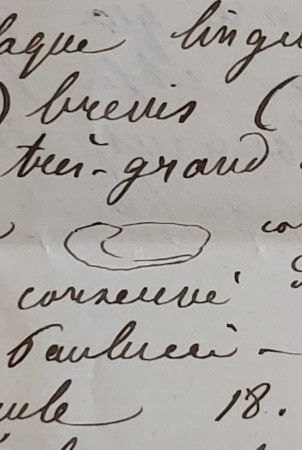 laque lingu
) brevis (
très-grand
co
conservé
Paulucci –
ule 18.